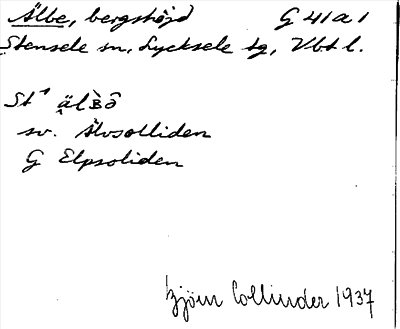 Älbe, bergshöjd G 41a1
Stensele sn, Lycksele tg, Vbtl.
St älʙô
sv. Älvsolliden
G Elpsoliden
Björn Collinder 1937